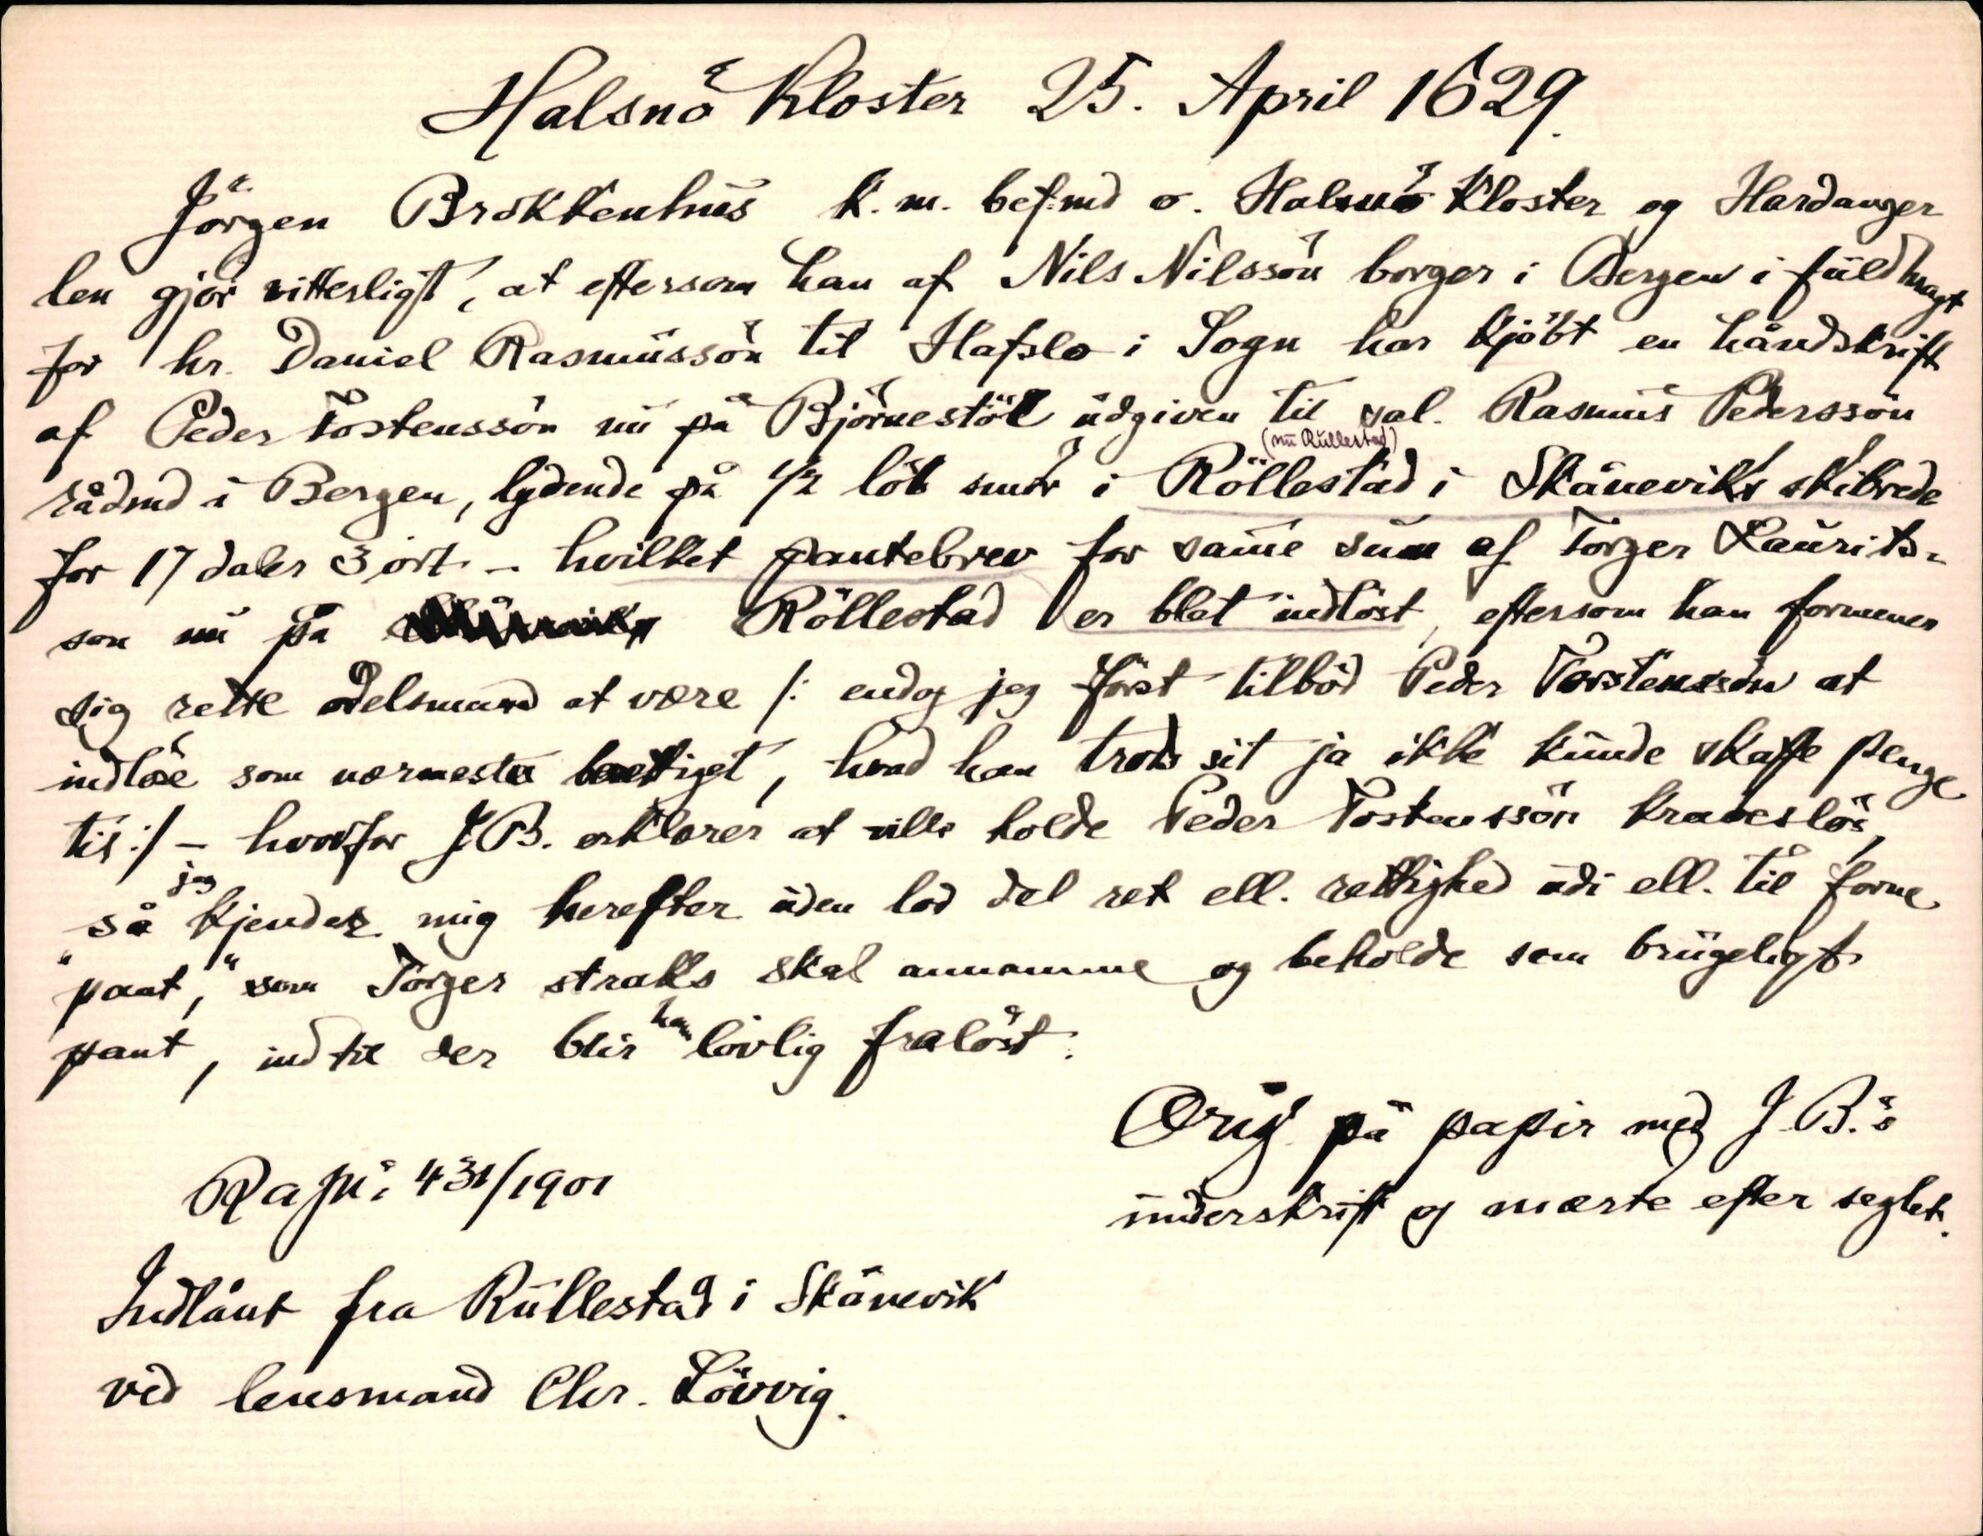 Halsnö Kloster 25. April 1629.
Jörgen Brokkenhus k. m. bef.md o. Halsnö kloster og Hardanger
len gjör vitterligt, at eftersom han af Nils Nilssön borger i Bergen i fuldmagt
for hr. Daniel Rasmussön til Hafslo i Sogn har kjöbt en håndskrift
af Peder Tostenssön nu på Björnestöl udgiven til sal. Rasmus Pederssön
(nu Rullestad)
rådmd i Bergen, lydende på 1/2 löb smör i Röllestad i Skåneviks skibrede
for 17 daler 3 ort - hvilket pantebrev for samme sum af Torger Laurits-
son nu på Röllestad er blet indlöst, eftersom han formener
sig rette odelsmand at være /: endog jeg först tilböd Peder Torstenssön at
indlöse som nærmeste berettiget, hvad han trods sit ja ikke kunde skaffe penge
til :/ - hvorfor J. B. erklærer at ville holde Peder Tostenssön kraveslös,
så jeg kjender mig herefter uden lod del ret ell. rettighed udi ell. til forne
"pant," som Torger straks skal annamme og beholde som brugeligt
pant, indtil der blir ham lovlig fralöst.
Orig. på papir med J. B.'s
underskrift og mærke efter seglet.
Ra jn: 431/1901
Indlånt fra Rullestad i Skånevik
ved lensmand Chr. Lövvig.